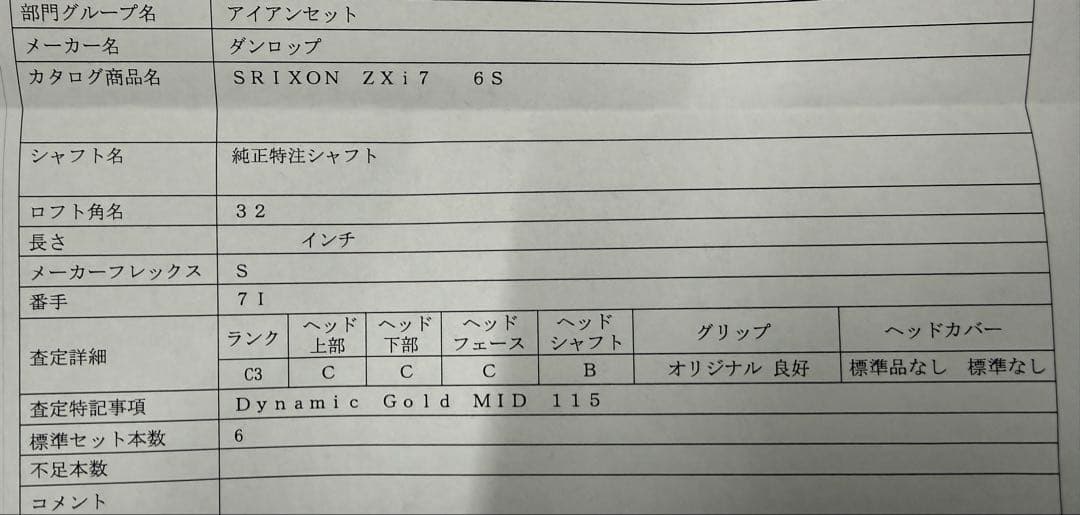 部門グループ名 アイアンセット
メーカー名 ダンロップ
カタログ商品名 ＳＲＩＸＯＮ　ＺＸｉ７　６Ｓ
シャフト名 純正特注シャフト
ロフト角名 ３２
長さ インチ
メーカーフレックス Ｓ
番手 ７Ｉ
査定詳細
ランク ヘッド上部 ヘッド下部 ヘッドフェース ヘッドシャフト グリップ ヘッドカバー
C3 Ｃ Ｃ Ｃ Ｂ オリジナル 良好 標準品なし 標準なし
査定特記事項 Ｄｙｎａｍｉｃ　Ｇｏｌｄ　ＭＩＤ　１１５
標準セット本数 6
不足本数
コメント